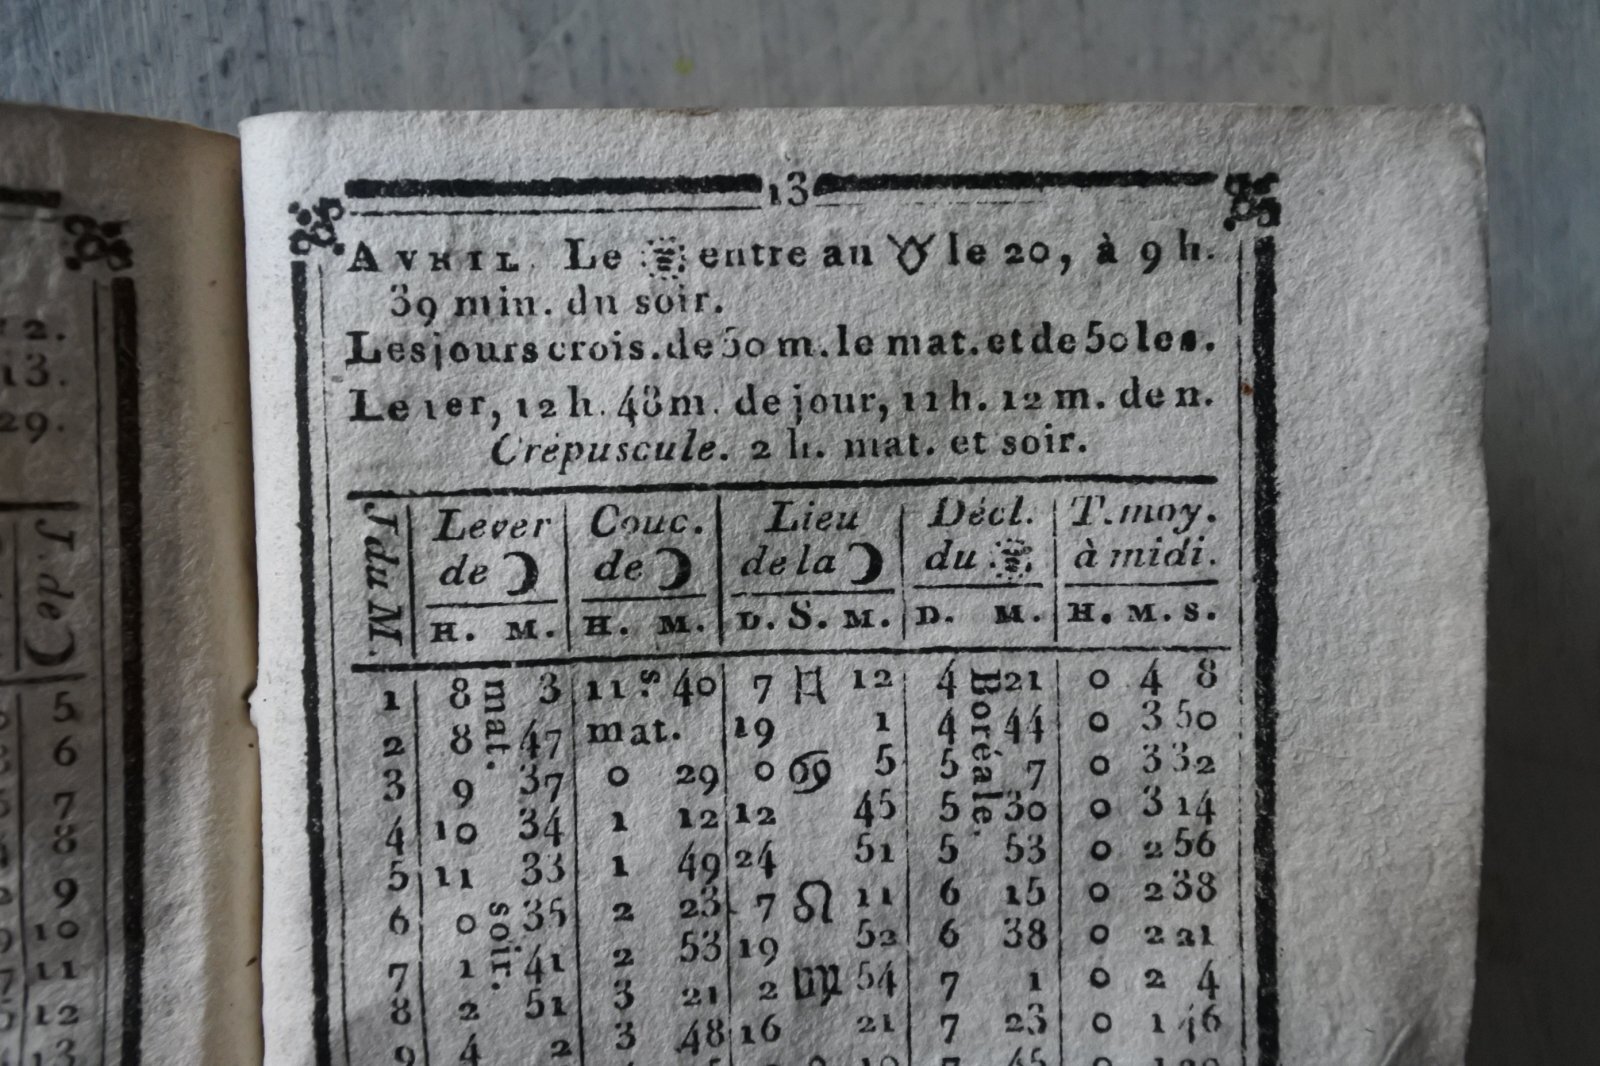 13
AVRIL. Le entre au ♉ le 20, à 9 h.
39 min. du soir.
Les jours crois. de 50 m. le mat. et de 50 le s.
Le 1er, 12 h. 48 m. de jour, 11 h. 12 m. de n.
Crépuscule. 2 h. mat. et soir.
J. du M. Lever de ☽ Couc. de ☽ Lieu de la ☽ Décl. du T. moy. à midi.
H. M. H. M. D. S. M. D. M. H. M. S.
1 8 mat. 3 11 s. 40 7 ♊ 12 4 Boréale. 21 0 4 8
2 8 47 mat. 19 1 4 44 0 3 50
3 9 37 0 29 0 ♋ 5 5 7 0 3 32
4 10 34 1 12 12 45 5 30 0 3 14
5 11 33 1 49 24 51 5 53 0 2 56
6 0 soir. 35 2 23 7 ♌ 11 6 15 0 2 38
7 1 41 2 53 19 52 6 38 0 2 21
8 2 51 3 21 2 ♍ 54 7 1 0 2 4
9 4 2 3 48 16 21 7 23 0 1 46
12.
13.
29.
J. de ☽
5
6
7
8
9
10
11
12
13